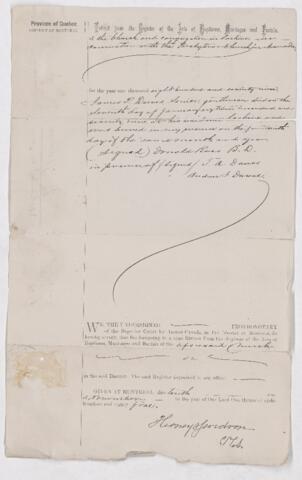 Province of Quebec
DISTRICT OF MONTREAL
Extract from the Register of the Acts of Baptisms, Marriages and Burials,
of the Church and congregation in Lachine in
connection with the Presbyterian Church in Canada
for the year one thousand eight hundred and seventy nine
James P. Dawes Senior, gentleman died on the
seventh day of January eighteen hundred and
seventy nine at his residence Lachine and
was buried in my presence on the
day of the same month and year
(Signed) Donald Ross B. D.
in presence of (signed) J. A. Dawes
Andrew J. Dawes.
WE, THE UNDERSIGNED PROTHONOTARY
of the Superior Court for Lower-Canada, in the District of Montreal, do
hereby certify, that the foregoing is a true Extract from the Register of the Acts of
Baptisms, Marriages and Burials of the aforesaid Church
in the said District. The said Register deposited in my office.
GIVEN AT MONTREAL, this tenth
of November in the year of Our Lord One thousand eight
hundred and eighty four.
Honey & Gendron